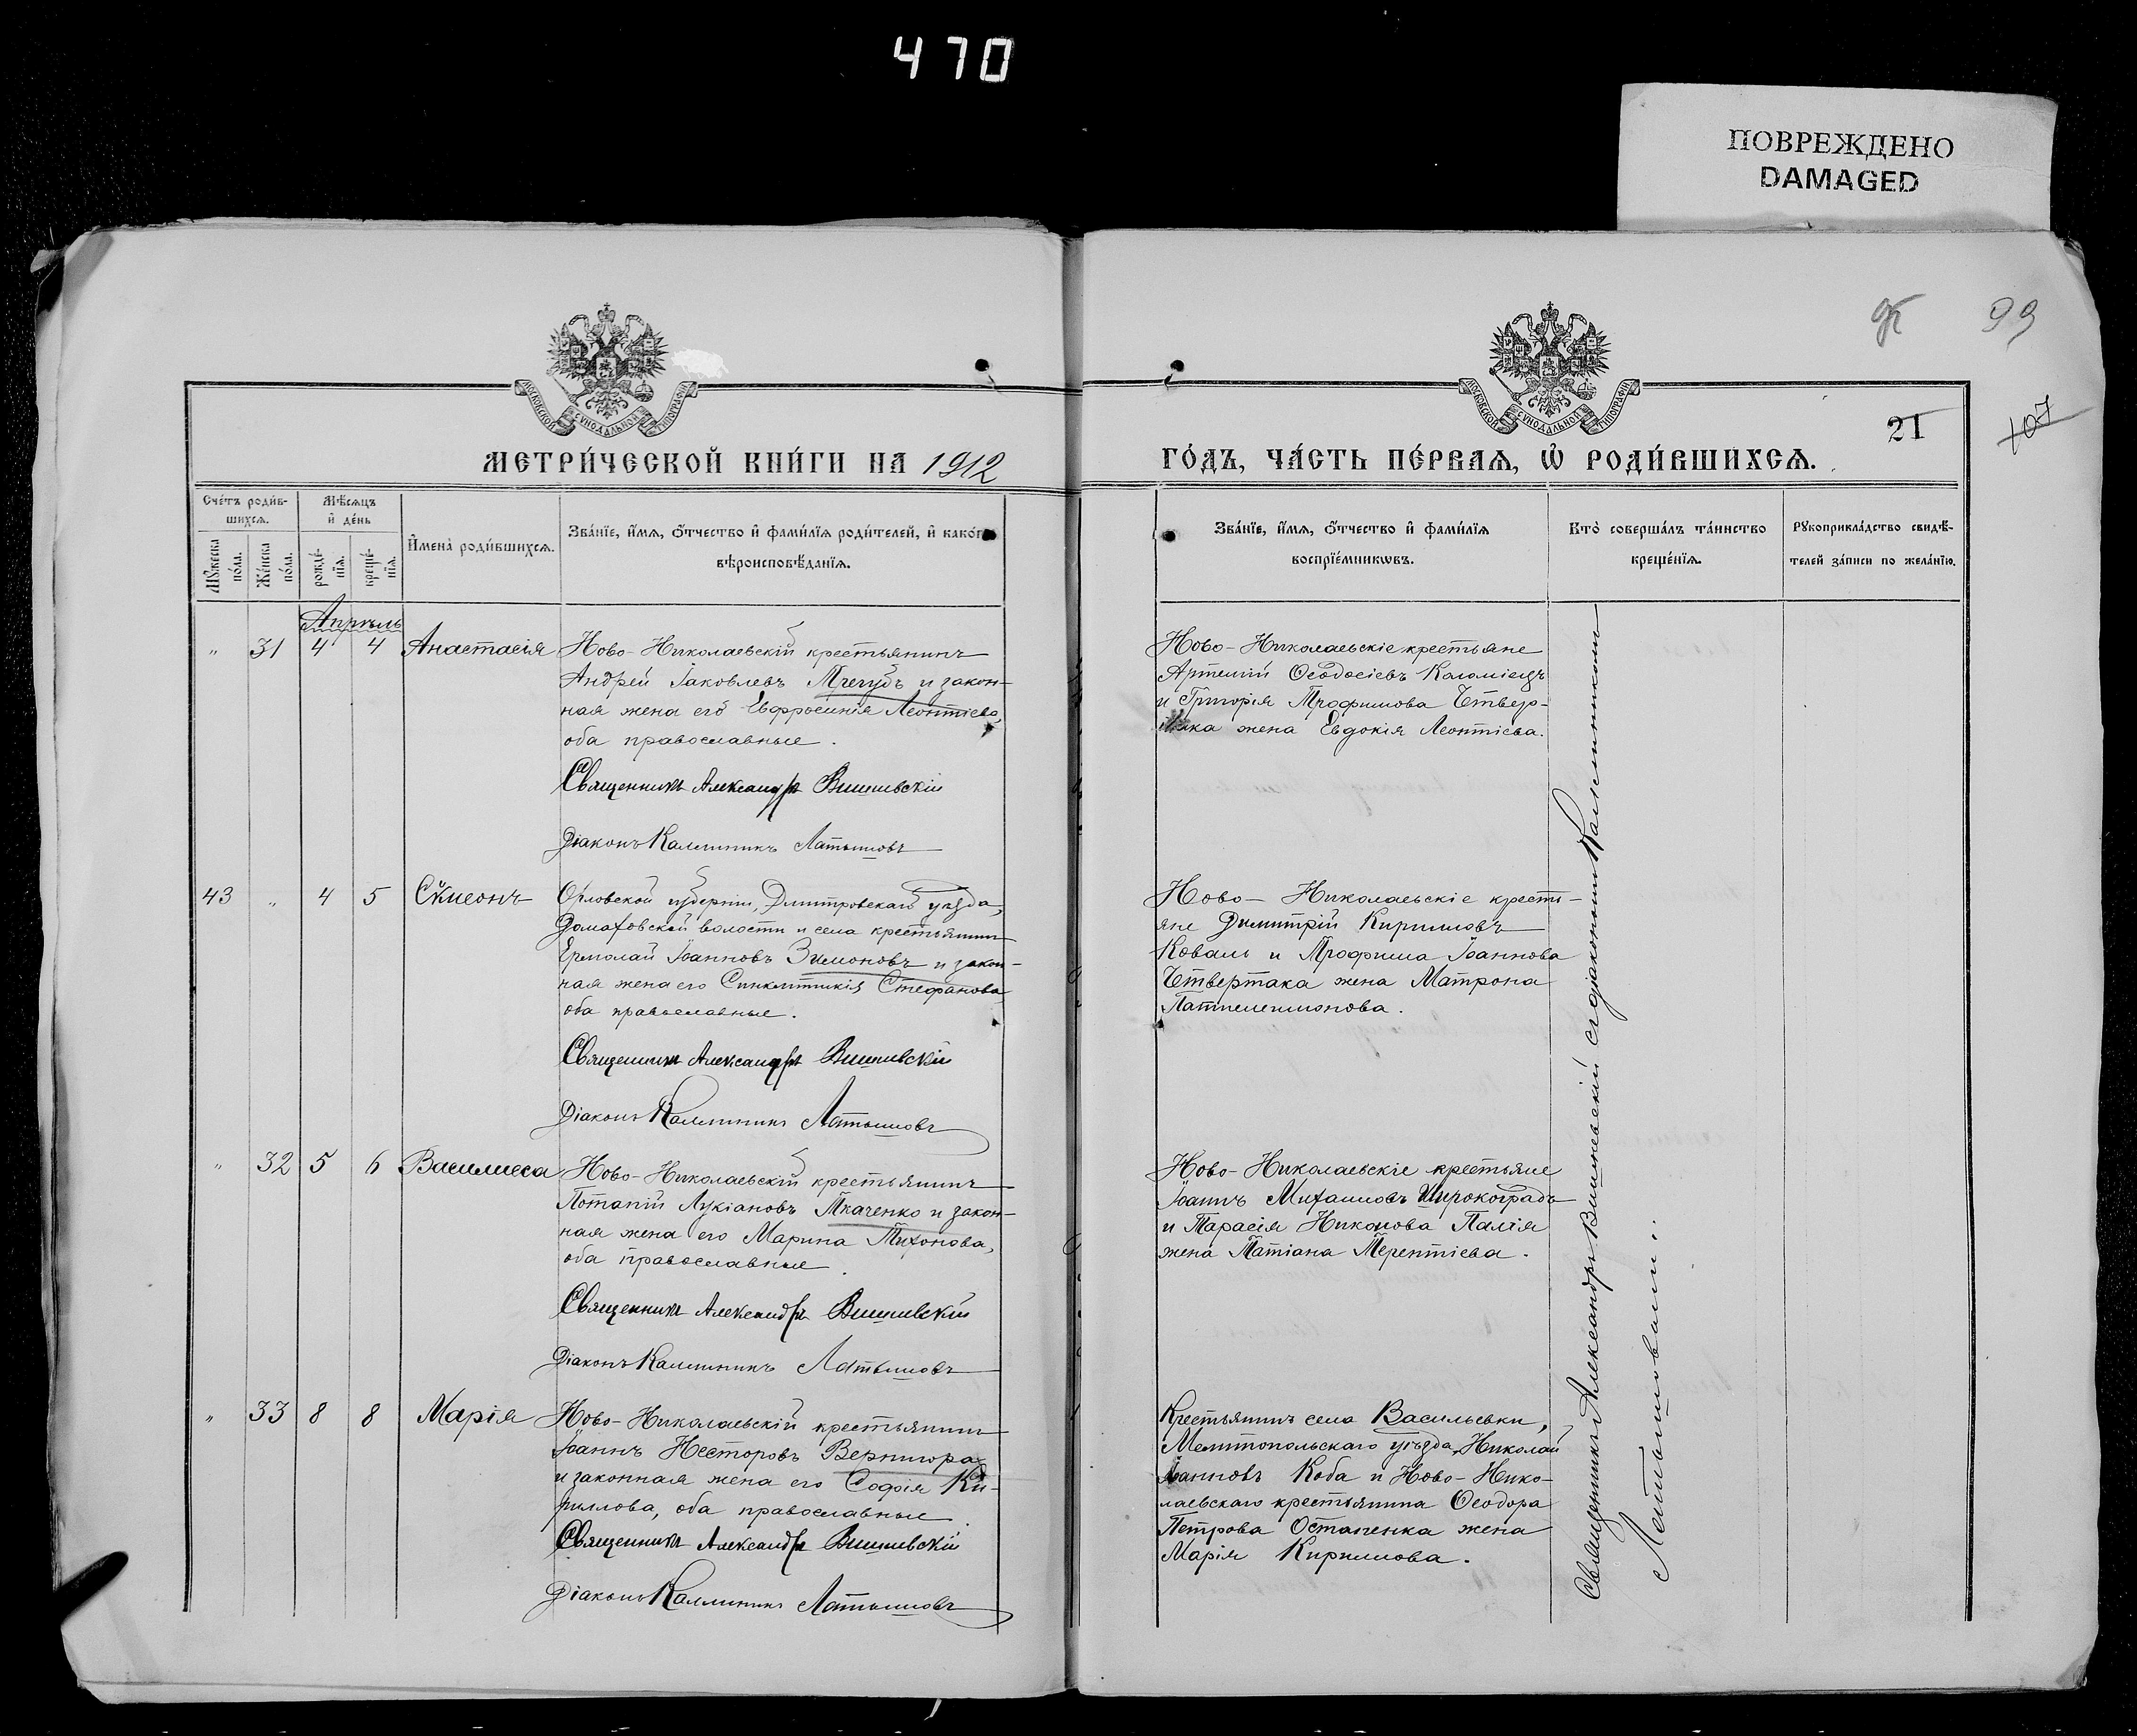 470
ПОВРЕЖДЕНО
DAMAGED
99
МОСКОВСКОЙ СУНОДАЛЬНОЙ ТИПОГРАФІИ
МОСКОВСКОЙ СУНОДАЛЬНОЙ ТИПОГРАФІИ
21
107
МЕТРИ́ЧЕСКОЙ КНИ́ГИ НА 1912
ГО́ДЪ, ЧА́СТЬ ПЕ́РВАѦ, Ѡ҆ РОДИ́ВШИХСѦ.
Сче́тъ роди́в-
шихсѧ.
Мꙋ́жеска по́ла.
Же́нска по́ла.
Мѣ́сѧцъ
и҆ де́нь
рожде́-
нїѧ.
креще́-
нїѧ.
И҆мена̀ роди́вшихсѧ.
Зва́нїе, и҆́мѧ, о҆́тчество и҆ фами́лїѧ роди́телей, и҆ како́гѡ
вѣроисповѣ́данїѧ.
Зва́нїе, и҆́мѧ, о҆́тчество и҆ фами́лїѧ
воспрїе́мникѡвъ.
Кто̀ соверша́лъ та́инство
креще́нїѧ.
Рꙋкоприкла́дство свидѣ́-
телей за́писи по жела́нїю.
Апрѣль
" 31 4 4 Анастасія
Ново-Николаевскій крестьянинъ
Андрей Іаковлевъ и закон-
ная жена его Евфросинія Леонтіева,
оба православные.
Священникъ Александръ Вишневскій
Діаконъ Каллиникъ Латышовъ
Ново-Николаевскіе крестьяне
Артемій Ѳеодосіевъ Коломіецъ
и Григорія Трофимова Четвер-
така жена Евдокія Леонтіева.
43 " 4 5 Сѵмеонъ
Орловской губерніи, Дмитровскаго уѣзда,
Домаховской волости и села крестьянинъ
Ермолай Іоанновъ Зимоновъ и закон-
ная жена его Синклитикія Стефанова
оба православные.
Священникъ Александръ Вишневскій
Діаконъ Каллиникъ Латышовъ
Ново-Николаевскіе кресть-
яне Димитрій Кирилловъ
Коваль и Трофима Іоаннова
Четвертака жена Матрона
Пантелеимонова.
" 32 5 6 Василисса
Ново-Николаевскій крестьянинъ
Потапій Лукіановъ Ткаченко и закон-
ная жена его Марина Тихонова,
оба православные.
Священникъ Александръ Вишневскій
Діаконъ Каллиникъ Латышовъ
Ново-Николаевскіе крестьяне
Іоаннъ Михаиловъ Широкоградъ
и Тарасія Никонова Палія
жена Татіана Терентіева.
" 33 8 8 Марія
Ново-Николаевскій крестьянинъ
Іоаннъ Несторовъ Вернигора
и законная жена его Софія Ки-
риллова, оба православные.
Священникъ Александръ Вишневскій
Діаконъ Каллиникъ Латышовъ
Крестьянинъ села Васильевки,
Мелитопольскаго уѣзда, Николай
Іоанновъ Коба и Ново-Нико-
лаевскаго крестьянина Ѳеодора
Петрова Остапенка жена
Марія Кириллова.
Священникъ Александръ Вишневскій съ діакономъ Каллиникомъ
Латышовымъ.